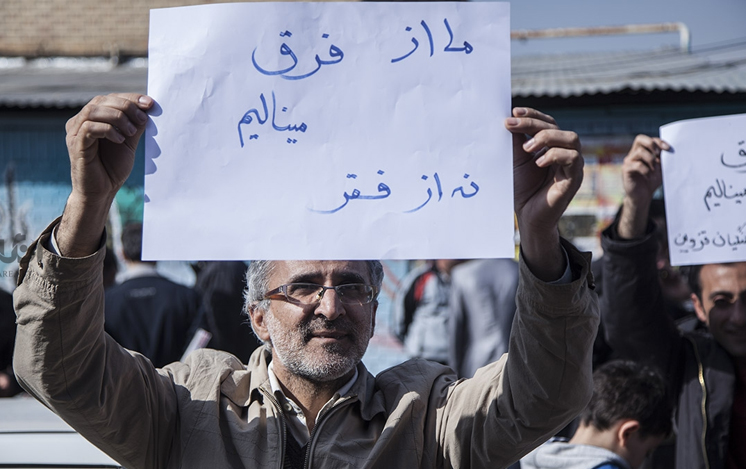 ما از فرق
مینالیم
نه از فقر
مینالیم
قزوین